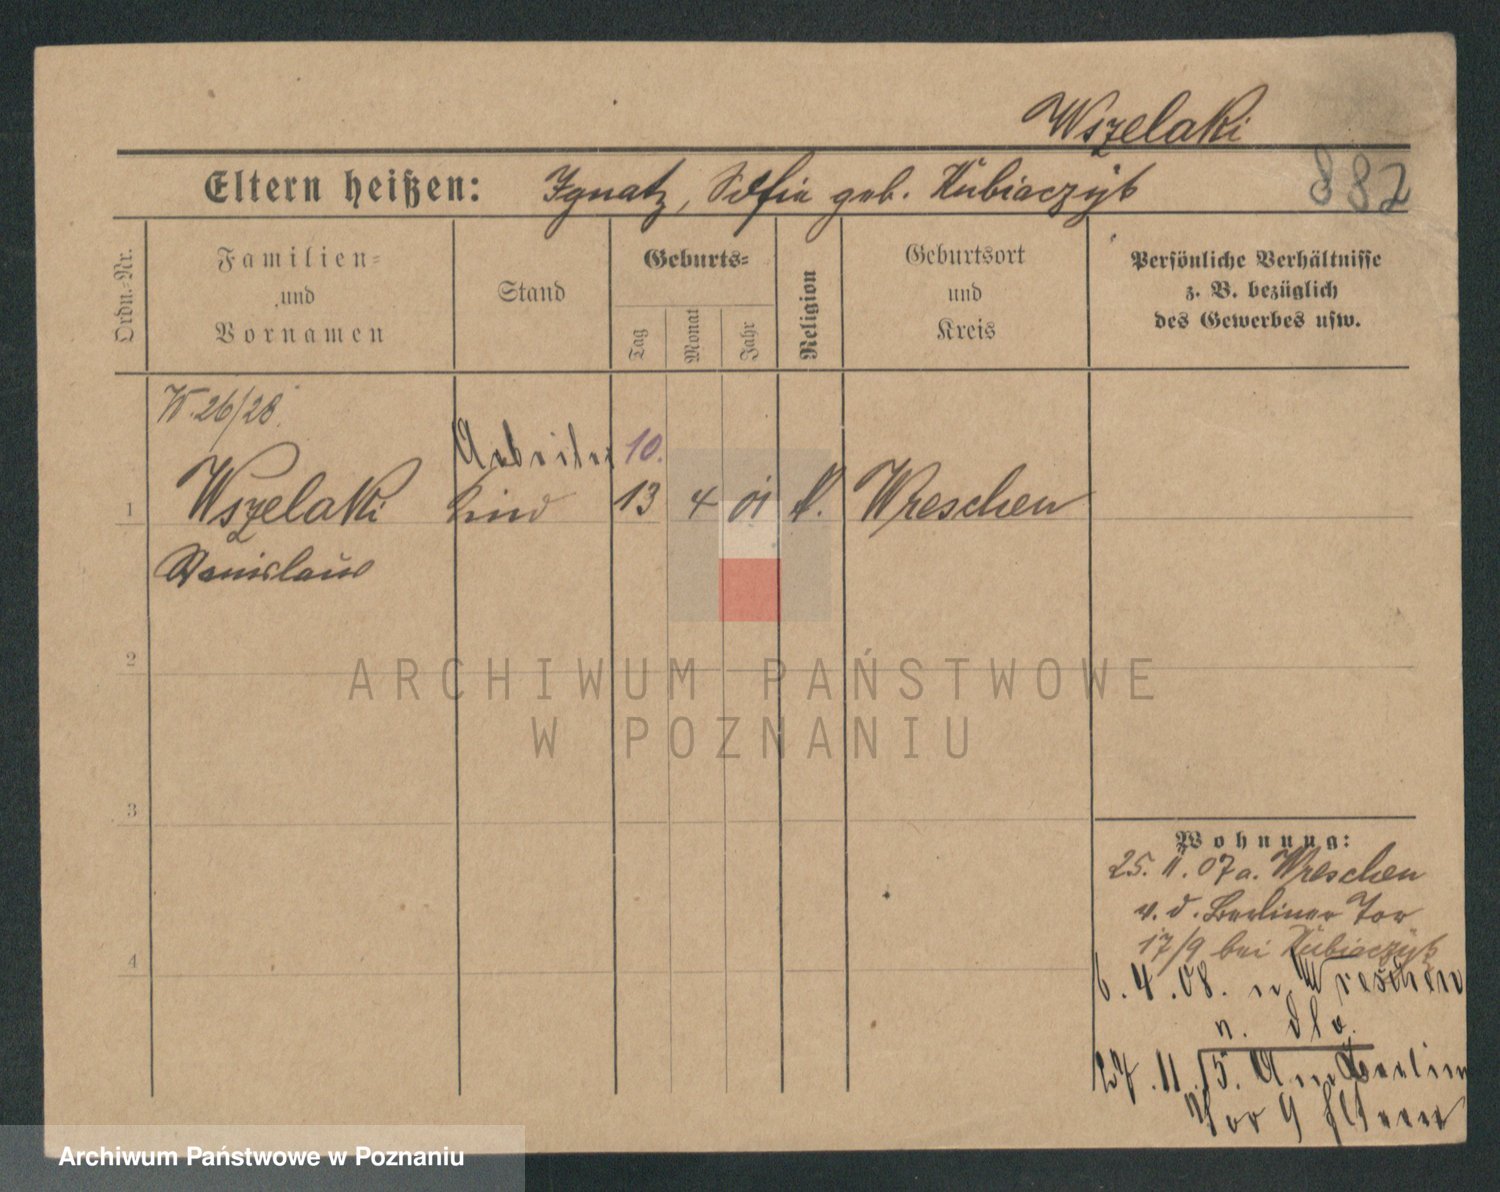 Wszelaki
882
Eltern heißen: Ignatz, Sofia geb. Kubiaczyk
Ordn.-Nr.
Familien-
und
Vornamen
Stand
Geburts-
Tag
Monat
Jahr
Religion
Geburtsort
und
Kreis
Persönliche Verhältnisse
z. B. bezüglich
des Gewerbes usw.
26/28.
Arbeiter 10.
1 Wszelaki Kind 13 4 01 K. Wreschen
Stanislaus
2
ARCHIWUM PAŃSTWOWE
W POZNANIU
3
Wohnung:
25. 11. 07 a. Wreschen
v. d. Berliner Tor
17/9 bei Kubiaczyk
4
6. 4. 08. n. Wreschen
27. 11. 15. Am Berliner
Tor 9 Eltern
Archiwum Państwowe w Poznaniu